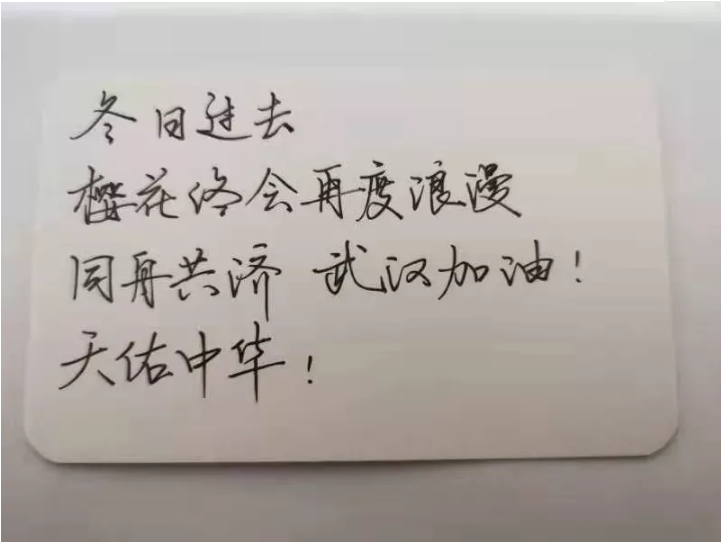 冬日过去
樱花终会再度浪漫
同舟共济 武汉加油！
天佑中华！